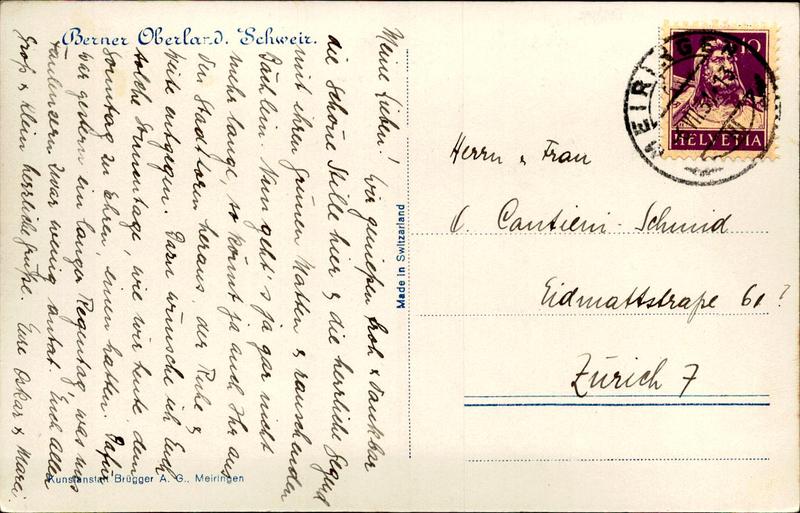 Berner Oberland. Schweiz.
Meine Lieben! Wir genießen froh & dankbar
die schöne Stille hier & die herrliche Gegend
mit ihren grünen Matten & rauschenden
Bächlein. Nun geht's ja gar nicht
mehr lange, so könnt ja auch Ihr aus
den Stadttoren heraus, der Ruhe &
Weite entgegen. Dann wünsche ich Euch
solche Sonnentage, wie wir heute dem
Sonntag zu Ehren, einen hatten. Dafür
war gestern ein langer Regentag, was uns
Faulenzern zwar wenig antat. Euch allen
Groß & Klein herzliche Grüße. Eure Oskar &
Kunstanstalt Brügger A. G., Meiringen
Made in Switzerland
10
HELVETIA
MEIRINGEN
Herrn & Frau
Cantieni-Schmid
Eidmattstraße 60?
Zürich 7